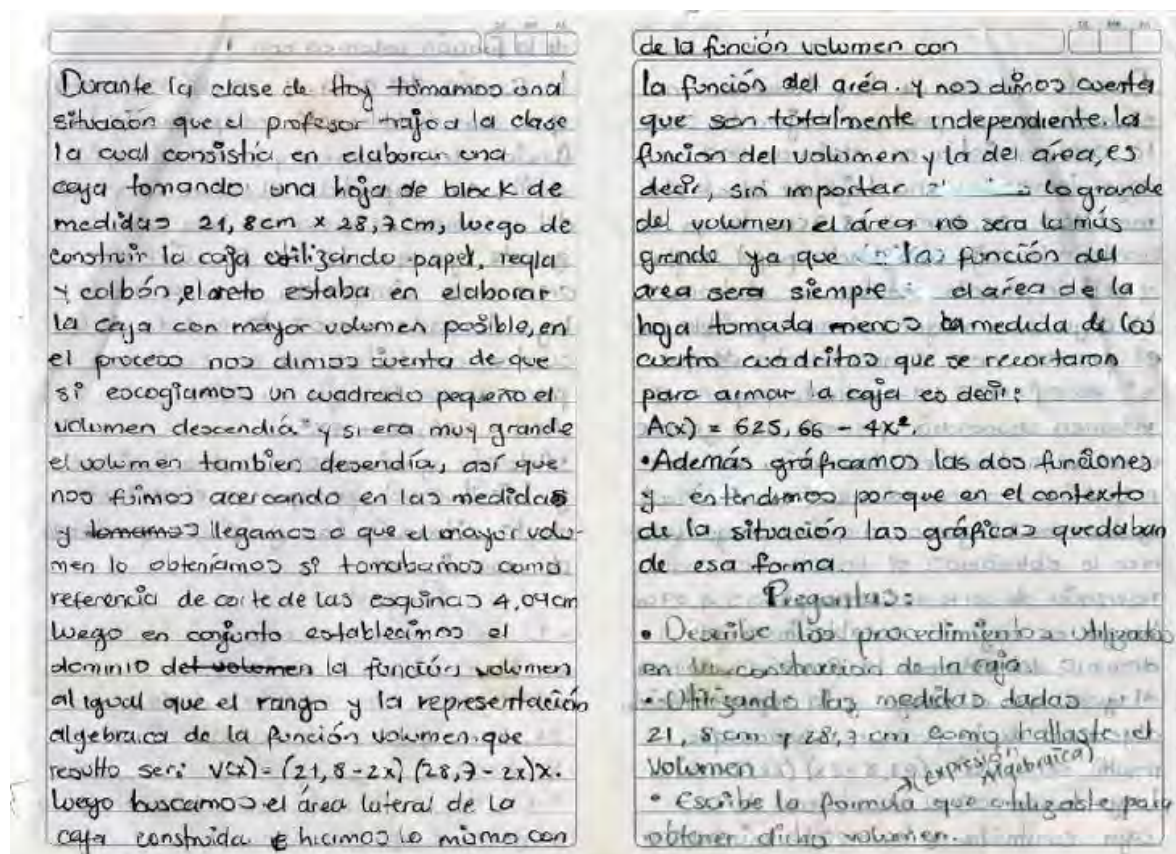 Durante la clase de Hoy tomamos una
situación que el profesor trajo a la clase
la cual consistía en elaborar una
caja tomando una hoja de block de
medidas 21,8cm x 28,7cm, luego de
construir la caja utilizando papel, regla
y colbón, el reto estaba en elaborar
la caja con mayor volumen posible, en
el proceso nos dimos cuenta de que
si escogíamos un cuadrado pequeño el
volumen descendía y si era muy grande
el volumen tambien desendía, así que
nos fuimos acercando en las medidas
y tomamos llegamos a que el mayor volu-
men lo obteníamos si tomabamos como
referencia de corte de las esquinas 4,09cm
luego en conjunto establecimos el
dominio del volumen la función volumen
al igual que el rango y la representación
algebraica de la función volumen que
resulto ser: V(x) = (21,8-2x) (28,7-2x)x.
Luego buscamos el área lateral de la
caja construida e hicimos lo mismo con
de la función volumen con
la función del area. y nos dimos cuenta
que son totalmente independiente. la
función del volumen y la del área, es
decir, sin importar lo grande
del volumen el área no sera la más
grande ya que las función del
area sera siempre el area de la
hoja tomada menos la medida de los
cuatro cuadritos que se recortaron
para armar la caja es decir:
A(x) = 625,66 - 4x².
•Además gráficamos las dos funciones
y entendimos porque en el contexto
de la situación las gráficas quedaban
de esa forma.
Preguntas:
• Describe los procedimientos utilizados
en la construccion de la caja
• Utilizando las medidas dadas
21,8 cm y 28,7 cm como hallaste el
volumen
→ (expresión algebraica)
• Escribe la formula que utilizaste para
obtener dicho volumen.